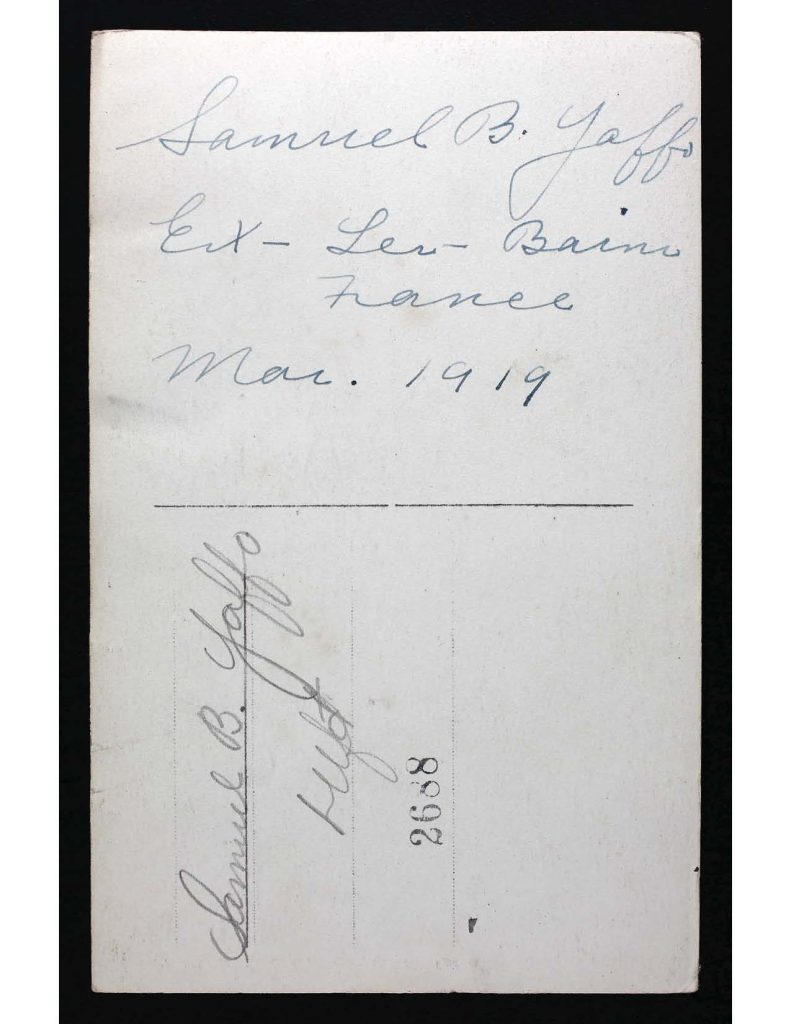 Samuel B. Yaffo
Ex - Les - Bains
France
Mar. 1919
Samuel B. Yaffo
2688